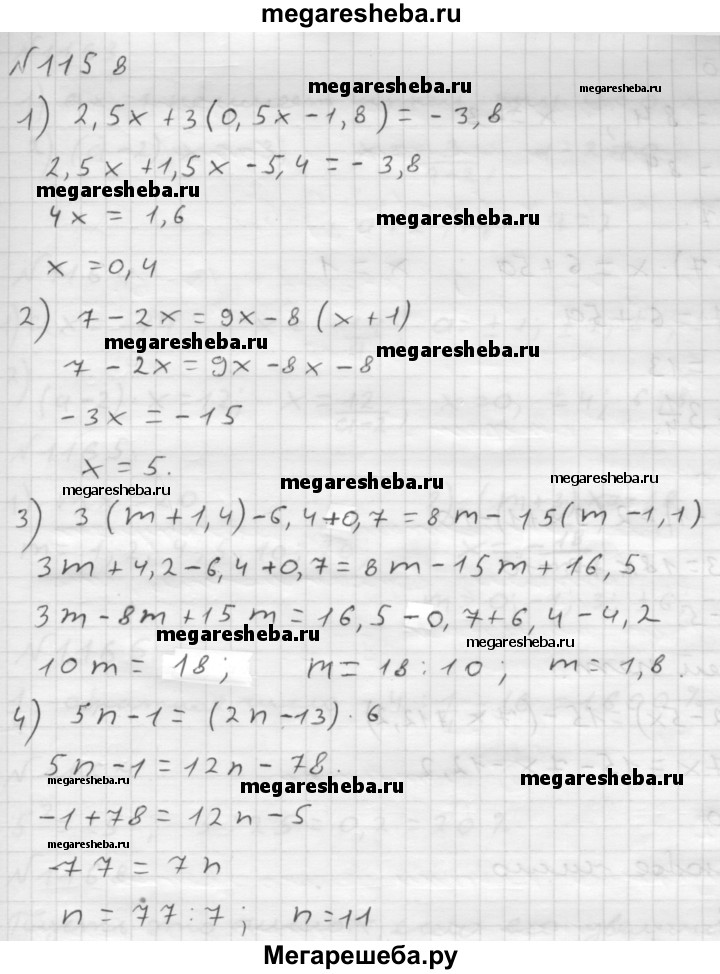 megaresheba.ru
№1158
megaresheba.ru
megaresheba.ru
1) 2,5x + 3(0,5x - 1,8) = - 3,8
2,5x + 1,5x - 5,4 = - 3,8
megaresheba.ru
4x = 1,6
megaresheba.ru
x = 0,4
2) 7 - 2x = 9x - 8 (x + 1)
megaresheba.ru
megaresheba.ru
7 - 2x = 9x - 8x - 8
- 3x = - 15
x = 5.
megaresheba.ru
megaresheba.ru
megaresheba.ru
3) 3 (m + 1,4) - 6,4 + 0,7 = 8m - 15(m - 1,1)
3m + 4,2 - 6,4 + 0,7 = 8m - 15m + 16,5
3m - 8m + 15m = 16,5 - 0,7 + 6,4 - 4,2
megaresheba.ru
megaresheba.ru
10m = 18; m = 18 : 10; m = 1,8.
4) 5n - 1 = (2n - 13) · 6
5n - 1 = 12n - 78.
megaresheba.ru
megaresheba.ru
megaresheba.ru
-1 + 78 = 12n - 5
megaresheba.ru
77 = 7n
n = 77 : 7; n = 11
Мегарешеба.ру